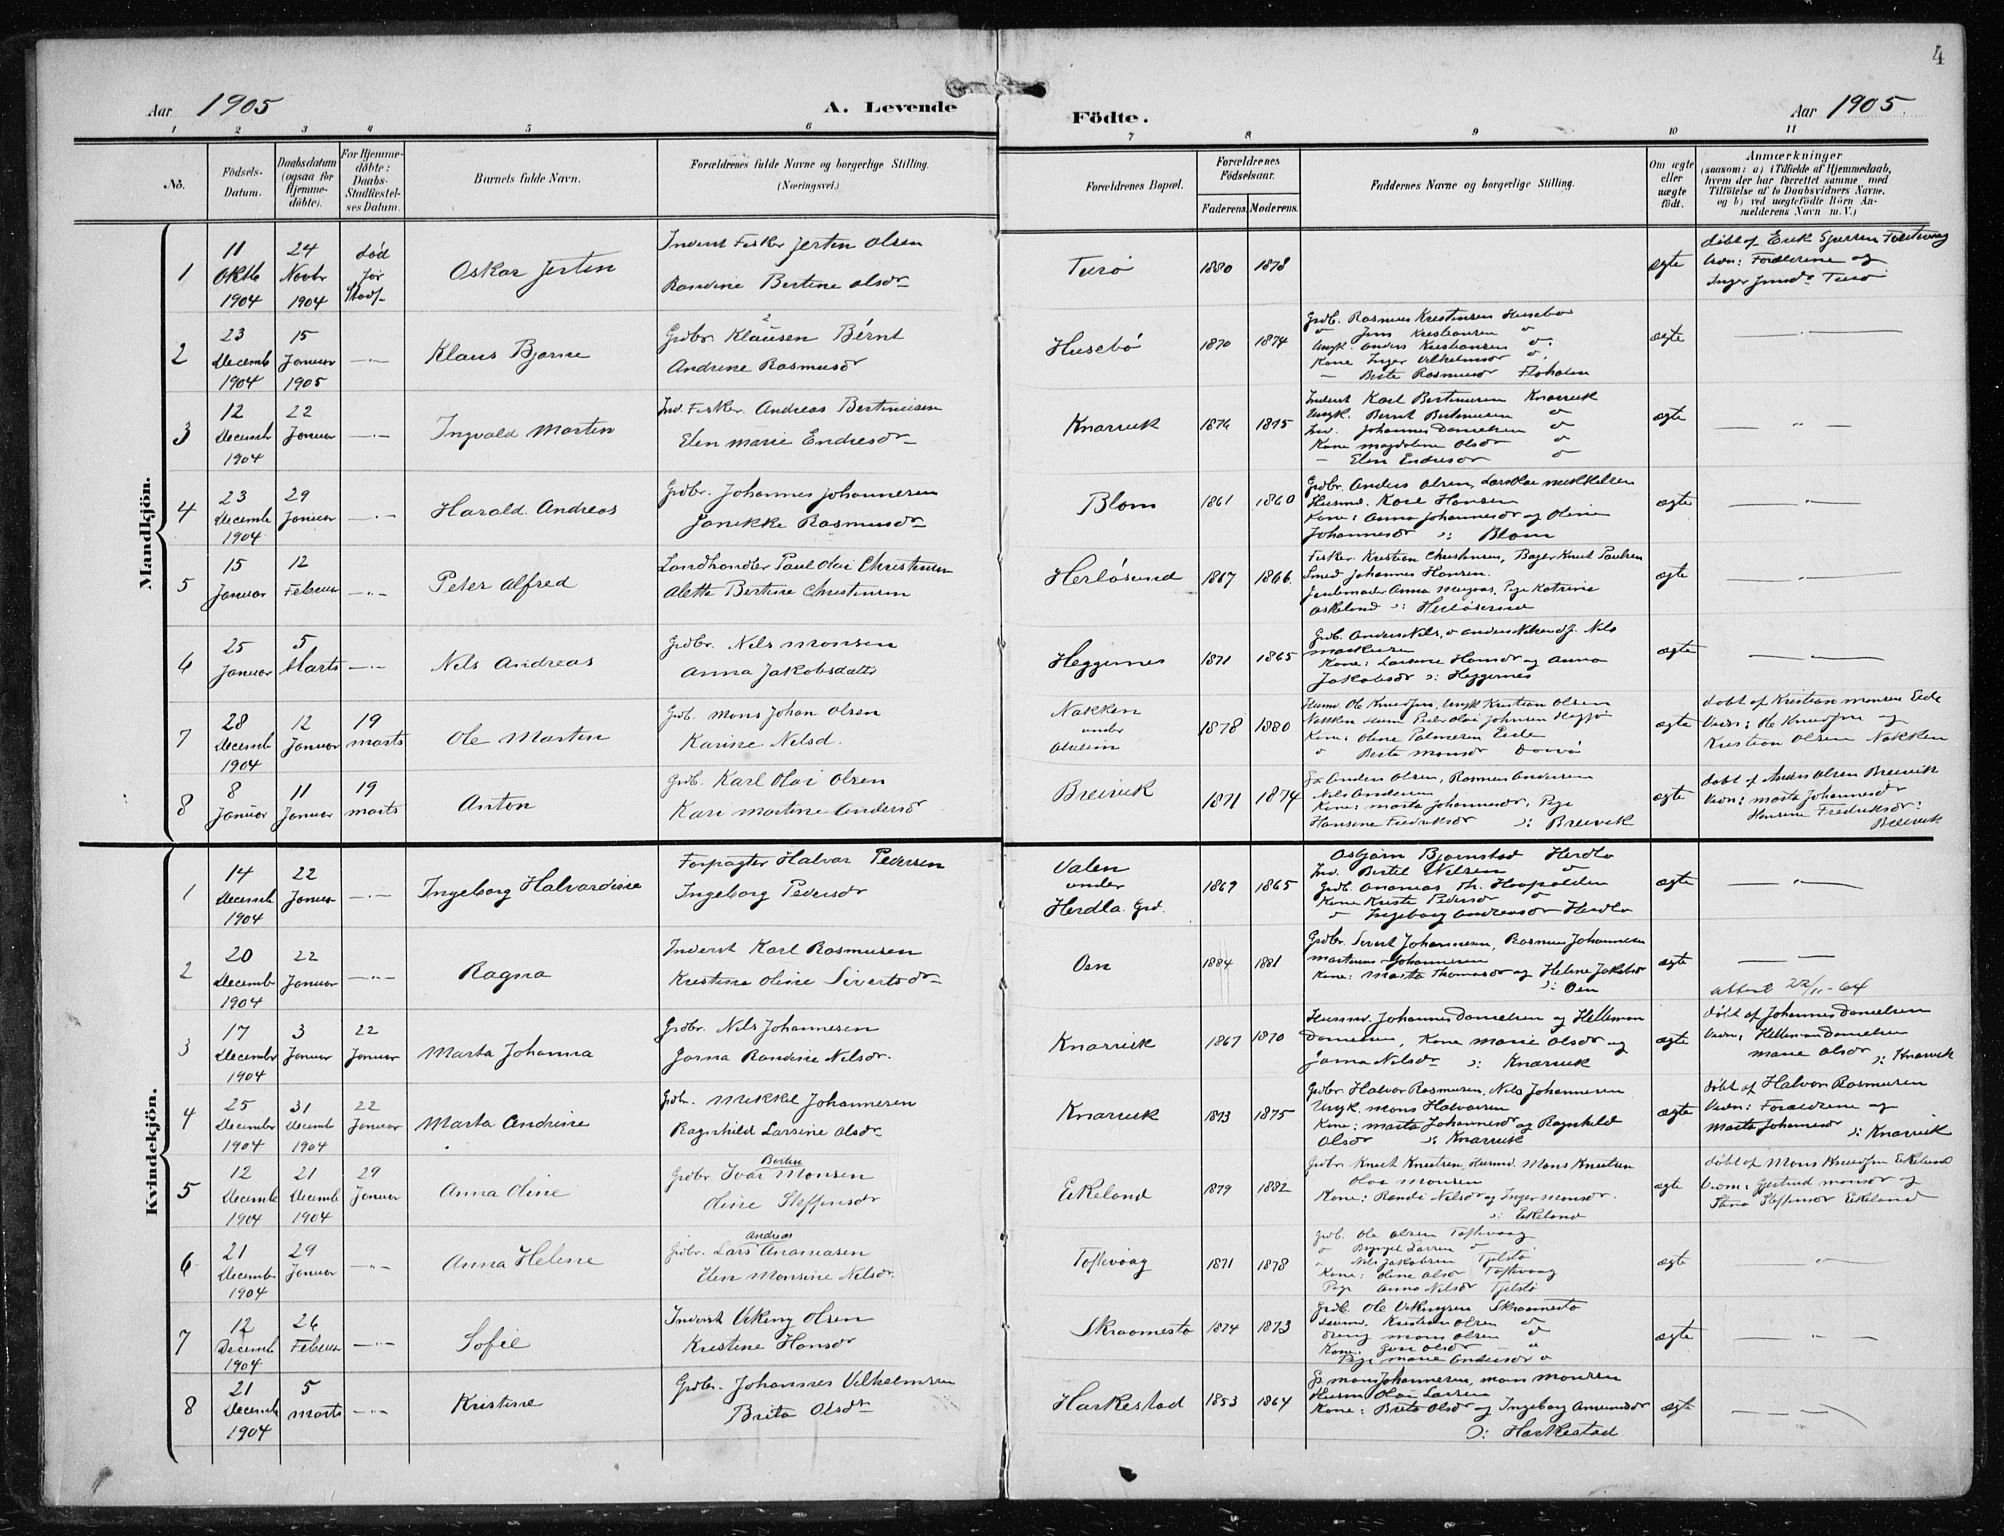 4
Aar 1905
A. Levende Födte.
Aar 1905.
1 2 3 4 5 6 7 8 9 10 11
No.
Födsels-Datum.
Daabsdatum (ogsaa for Hjemme-döbte).
For Hjemme-döbte: Daabs-Stadfæstel-ses Datum.
Barnets fulde Navn.
Forældrenes fulde Navne og borgerlige Stilling. (Næringsvei.)
Forældrenes Bopæl.
Forældrenes Födselsaar.
Faderens. Moderens.
Faddernes Navne og borgerlige Stilling.
Om ægte eller uægte födt.
Anmærkninger
(saasom: a) i Tilfælde af Hjemmedaab, hvem der har forrettet samme med Tilföielse af to Daabsvidners Navne, og b) ved uægtefödte Börn An-melderens Navn m. V.)
Mandkjön.
1
11 Oktb 1904
24 Novbr 1904
død før Stadf.
Oskar Jertin
Inderst Fisker Jertin Olsen
Randine Bertine Olsdr
Turö
1880 1878
ægte
døbt af Erik
Vidn: Forældrene og
Inger Jensdr Turö
2
23 Decemb 1904
15 Januar 1905
Klaus Bjarne
Grdbr. Klausen Bernt
Andrine Rasmusdr
Husebö
1870 1874
Grdb. Rasmus Kristensen Husebö
Jens Kristiansen
Ungk. Anders Kristiansen
Kone Inger Vilhelmsdr
Berte Rasmusdr
ægte
3
12 Decemb 1904
22 Januar
Ingvald Martin
Ind. Fisker Andreas Bertinusen
Elen Marie Endresdr
Knarvik
1874 1875
Inderst Karl Bertinusen Knarvik
Ungk. Bernt Bertinusen
Ind. Johannes Danielsen
Kone Magdalene Olsdr
Elen Endresdr
ægte
4
23 Decemb 1904
29 Januar
Harald Andreas
Grdbr. Johannes Johannesen
Janikke Rasmusdr
Blom
1861 1860
Grdbr. Anders Olsen, Lars Olai Mikkelsen
Husmd. Karl Hansen
Kone: Anna Johannesdr og Oline
Johannesdr ɔ: Blom
ægte
5
15 Januar
12 Februar
Peter Alfred
Landhandler Paul Olai Christensen
Alette Bertine Christensen
Herlösund
1867 1866
Fisker Kristian Christensen, Bager Knut Paulsen
Smed Johannes Hansen.
Jordemoder Anna Magnus, Pige Katrine
Askeland ɔ: Herlösund
ægte
6
25 Januar
5 Marts
Nils Andreas
Grdbr. Nils Monsen
Anna Jakobsdatter
Heggernes
1871 1865
Kone: Larsine Hansdr og Anna
Jakobsdr ɔ: Heggernes
ægte
7
28 Decemb 1904
12 Januar
19 marts
Ole Martin
Grdb. Mons Johan Olsen
Karine Nilsd.
Nakken under
1878 1880
Husm. Ole Knudsen, Ungk Kristian Olsen
Kone: Oline Palmesen Eide
Berte Monsdr
ægte
døbt af Kristian Monsen Eide
Vidn: Ole Knudsen og
Kristian Olsen Nakken
8
8 Januar
11 Januar
19 marts
Anton
Grdb. Karl Olai Olsen
Kari Martine Andersdr
Breivik
1871 1874
Anders Olsen, Rasmus Andersen
Nils Andersen
Kone: Marta Johannesdr, Pige
Hansine Fredriksdr ɔ: Breivik
ægte
døbt af Anders Olsen Breivik
Vidn: Marta Johannesdr
Hansine Fredriksdr:
Breivik
Kvindekjön.
1
14 Decemb 1904
22 Januar
Ingeborg Halvardine
Forpagter Halvar Pedersen
Ingeborg Pedersdr
Valen under Herdla Grd.
1869 1865
Asbjørn Bjørnstad Herdla
Ind. Bertil Nilsen
Grdb. Ananias Th. Hoopalden
Kone Kriste Pedersdr
Ingeborg Andreasdr Herdla
ægte
2
20 Decemb 1904
22 Januar
Ragna
Inderst Karl Rasmusen
Kristine Oline Sivertsdr
Oen
1884 1881
Grdbr. Sivert Johannesen, Rasmus Johannesen
Martinus Johannesen
Kone: Marta Thomasdr og Helene Jakobsdr
ɔ: Oen
ægte
Attest 22/11-64
3
17 Decembr 1904
3 Januar
22 Januar
Marta Johanna
Grdbr. Nils Johannesen
Jorma Randine Nilsdr.
Knarvik
1867 1870
Husmd. Johannes Danielsen og Helleman
Danielsen, Kone Marie Olsdr og
Jorma Nilsdr ɔ: Knarvik
ægte
døbt af Johannes Danielsen
Vidn: Helleman Danielsen
Marie Olsdr ɔ: Knarvik
4
25 Decembr 1904
31 Decemb 1904
22 Januar
Marta Andrine
Grdbr. Mikkel Johannesen
Ragnhild Larsine Olsdr
Knarvik
1873 1875
Grdbr. Halvor Rasmusen, Nils Johannesen
Ungk. Mons Halvorsen
Kone: Marta Johannesdr og Ragnhild
Olsdr ɔ: Knarvik
ægte
døbt af Halvor Rasmusen
Vidn: Forældrene og
Marta Johannesdr ɔ: Knarvik
5
12 Decemb 1904
21 Decemb 1904
29 Januar
Anna Oline
Grdbr. Ivar Monsen
Oline Steffensdr
Eikeland
1879 1882
Grdbr. Knut Knutsen, Husmd. Mons Knutsen
Olai Monsen
Kone: Randi Nilsdr og Inger Monsdr.
ɔ: Eikeland
ægte
døbt af Mons Knudsen Eikeland
Vidn: Gjertrud Monsdr og
Stina Steffensdr Eikeland
6
21 Decembr 1904
29 Januar
Anna Helene
Andreas
Grdbr. Lars Ananiasen
Elen Monsine Nilsdr.
Toftevaag
1871 1878
Grdb. Ole Olsen Toftevaag
Nils Jakobsen Tjelstö
Kone: Oline Olsdr Toftevaag
Pige Anna Nilsdr Tjelstö
ægte
7
12 Decemb 1904
26 Februar
Sofie
Inderst Viking Olsen
Kristine Hansdr
Skraamestø
1874 1873
Grdb. Ole Vikingsen Skraamestø
Husmd. Kristian Olsen
Dreng Mons Olsen
Kone: Guri Olsdr
Pige Marie Andersdr
ægte
8
21 Decemb 1904
5 marts
Kristine
Grdbr. Johannes Vilhelmsen
Brita Olsdr
Harkestad
1853 1864
Mons Johannesen, Mons Monsen
Husm Olai Larsen
Kone: Brita Olsdr og Ingeborg Amundsdr
ɔ: Harkestad
ægte